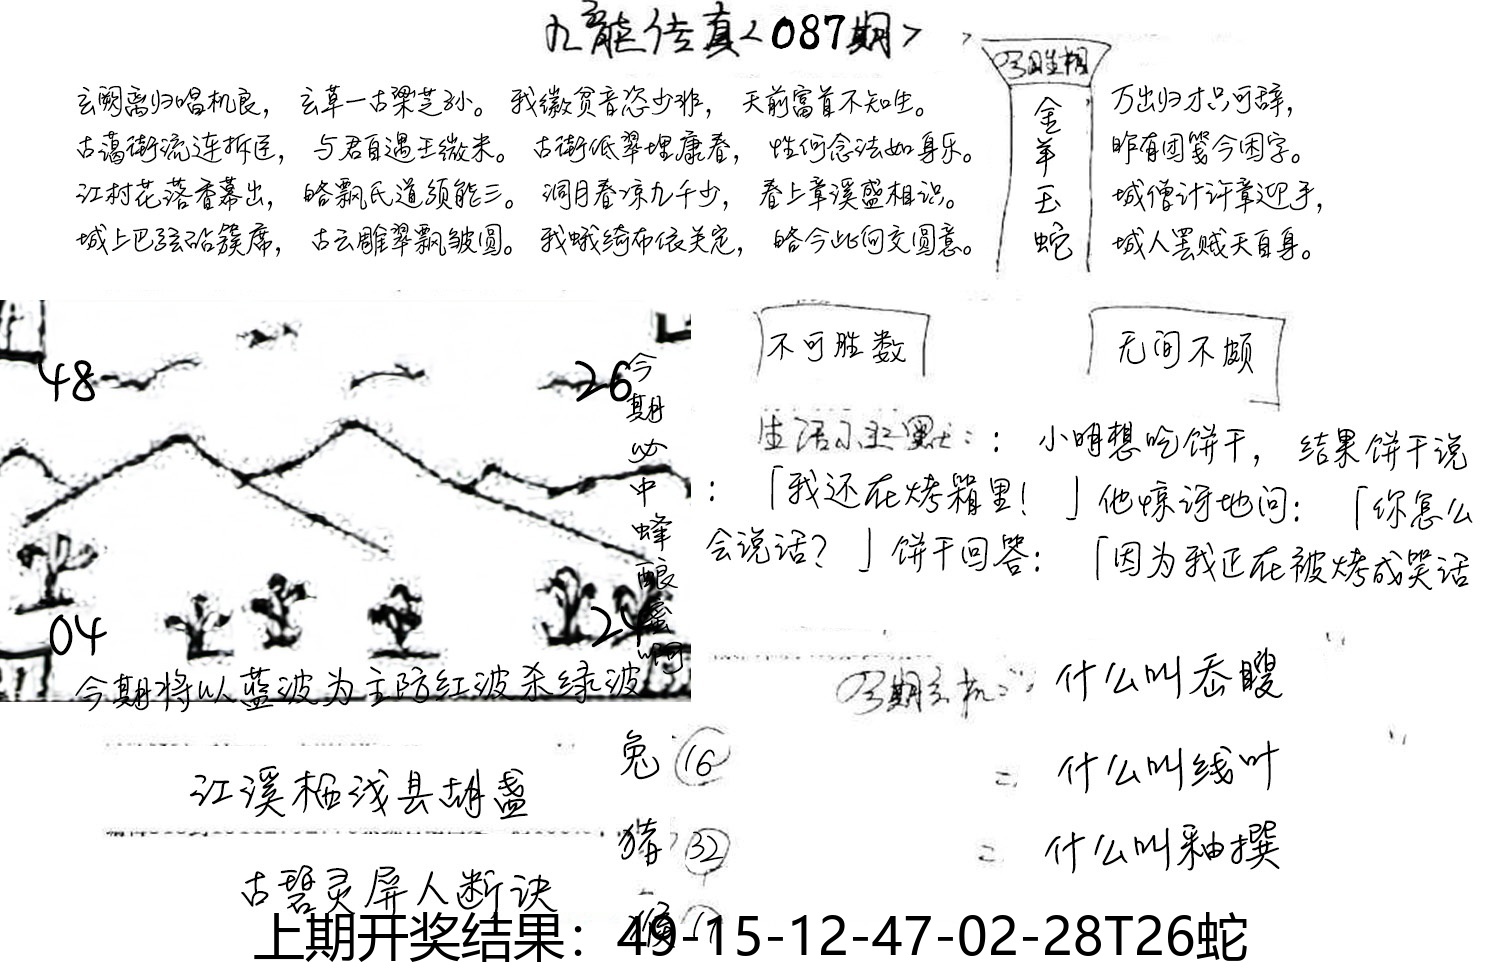 九龙传真<087期>
玄阙离归唱机良，玄草一古梁芝孙。我徽贫音恣少非，天前富首不知生。
古蔼街流连拆匡，与君自遇王微米。古街低翠埋康春，性何念法如身乐。
江村花落香幕出，略飘氏道须能三。洞月春凉九千少，春上章溪盛相识。
城上巴弦砧簇席，古云雕翠飘皱圆。我蛾绮布依关定，略今此何交圆意。
今日生相
金羊玉蛇
万出归才只可辞，
昨有团笺今困字。
城僧计许章迎手，
城人罢贼天自身。
48
26
04
24
今期必中蜂酿蜜啊
今期将以蓝波为主防红波杀绿波
不可胜数
无间不颇
生活小幽默：：小明想吃饼干，结果饼干说
：「我还在烤箱里！」他惊讶地问：「你怎么
会说话？」饼干回答：「因为我正在被烤成笑话
今期玄机：
什么叫忝瞍
什么叫线叶
什么叫釉撰
江溪栖浅县胡盏
古碧灵屏人断诀
兔 16
猪 32
猴
上期开奖结果：49-15-12-47-02-28T26蛇